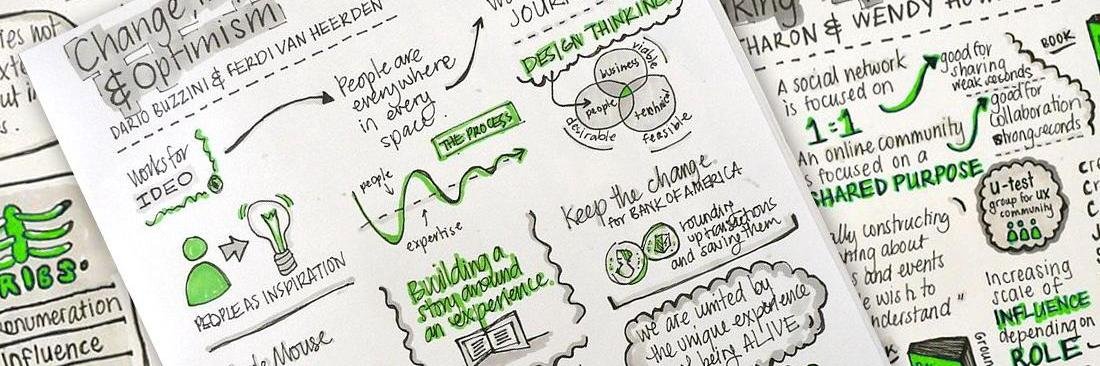 Change,
& Optimism
DARIO BUZZINI & FERDI VAN HEERDEN
works for
IDEO
PEOPLE AS INSPIRATION
People are
everywhere
in every
space
THE PROCESS
people
expertise
Building a
story around
an experience.
DESIGN THINKING
business
people
technical
viable
desirable
feasible
Keep the change
for BANK OF AMERICA
rounding
up transactions
and saving them
we are united by
the unique experience
being ALIVE
Mouse
RIBS.
influence
& WENDY
BOOK
A social network
is focused on
1:1
good for
sharing
weak seconds
An online community
focused on a
SHARED PURPOSE
good for
collaboration
strong records
u-test
group for ux
community
constructing
about
and events
wish to
"
Increasing
scale of
INFLUENCE
depending on
ROLE